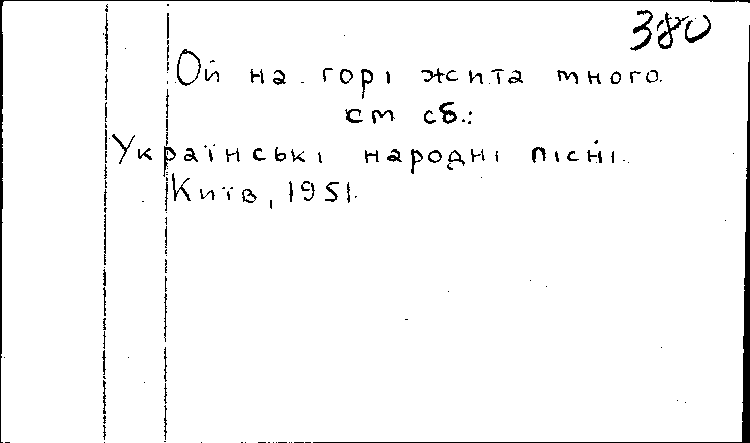 380
Ой на горі жита много
см сб.:
Українські народні пісні.
Київ, 1951.